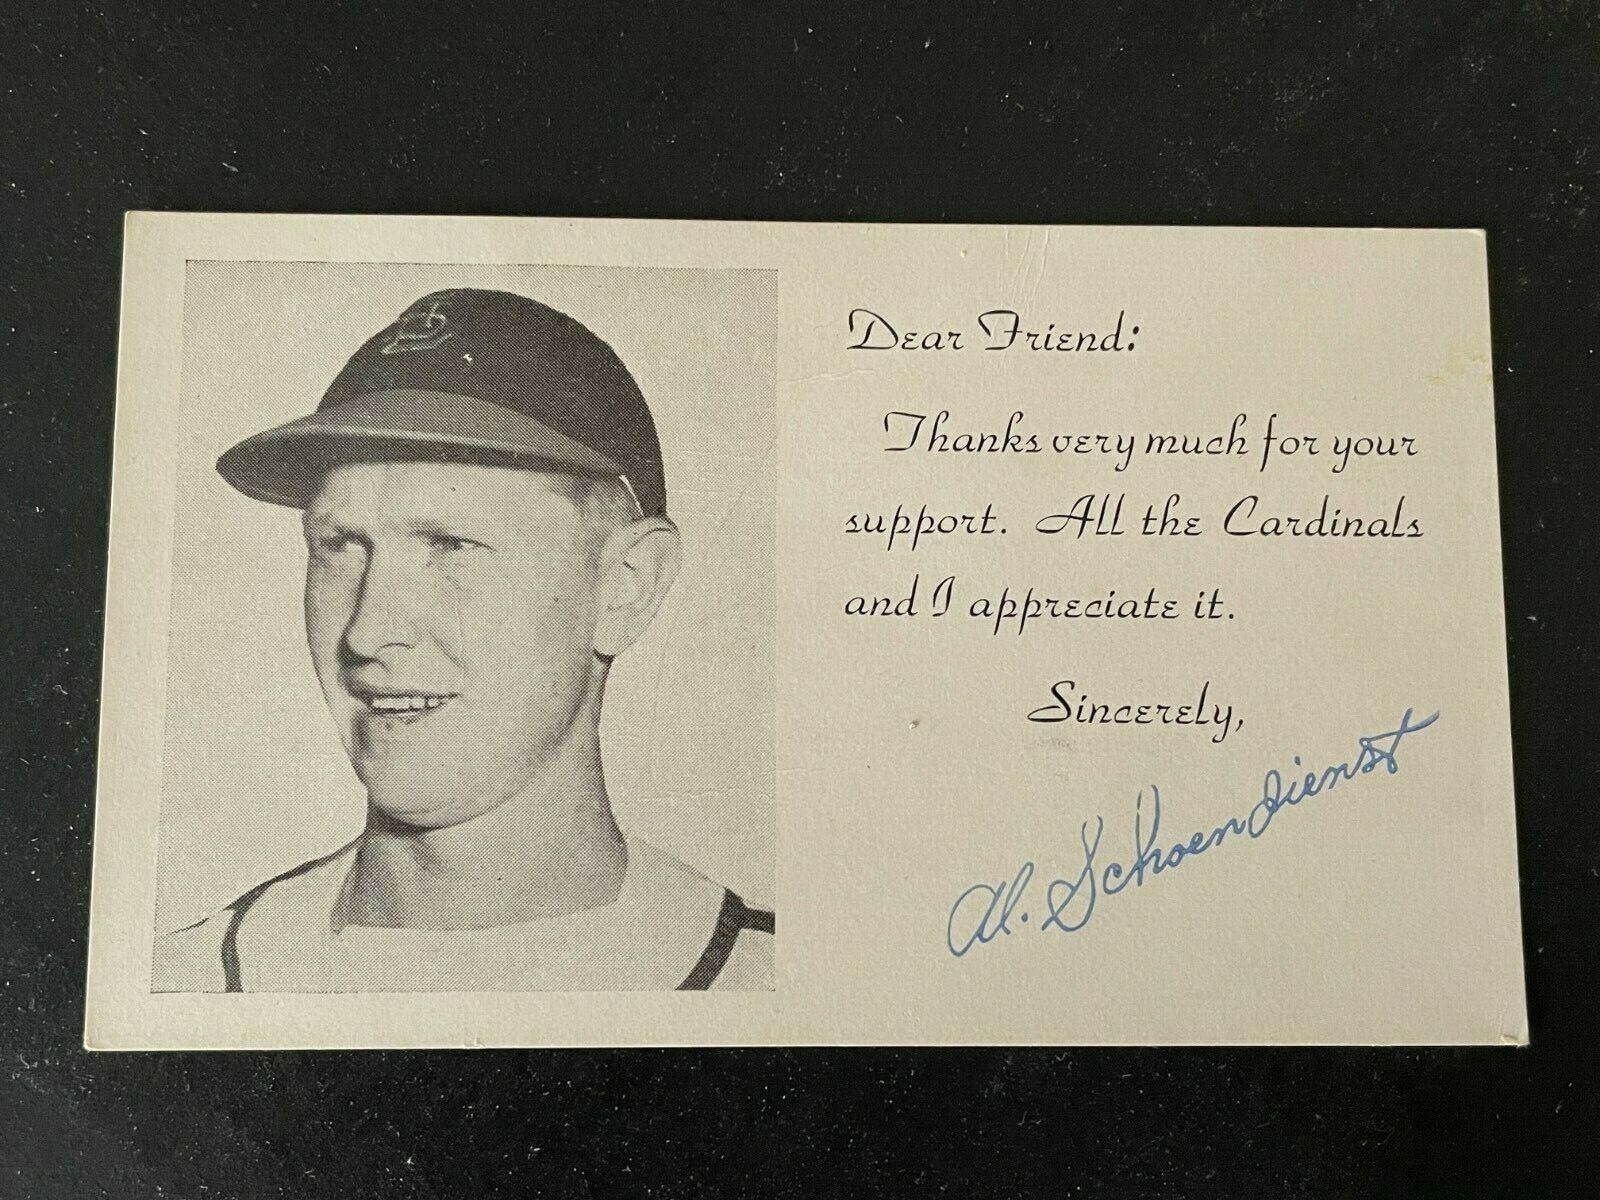 StL
Dear Friend:
Thanks very much for your
support. All the Cardinals
and I appreciate it.
Sincerely,
Al. Schoendienst